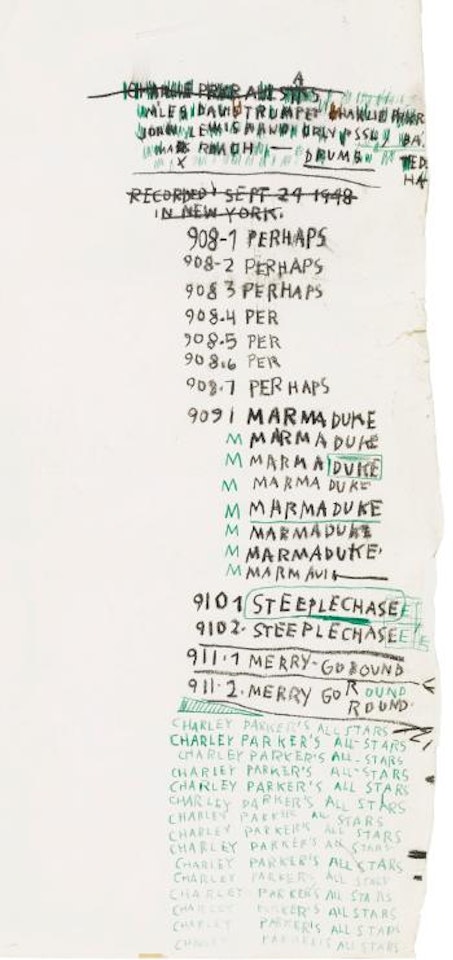 CHARLIE PRKR ALL STRS
MILES DAVIS TRUMPET CHARLIE PRKR
JOHN LEWIS PIANO CURLY RSSLL BA.
MAX ROACH — DRUMS TED.
X HA
RECORDED SEPT 24 1948
IN NEW YORK.
908-1 PERHAPS
908-2 PERHAPS
908 3 PERHAPS
908.4 PER
908.5 PER
908.6 PER
908.7 PERHAPS
909 1 MARMADUKE
M MARMADUKE
M MARMA DUKE
M MARMA DUKE
M MARMADUKE
M MARMADUKE
M MARMADUKE
M MARMAUI
910 1 STEEPLECHASE
910 2. STEEPLECHASE
911.1 MERRY-GO ROUND
911-2. MERRY GO ROUND
ROUND
CHARLEY PARKER'S ALL STARS
CHARLEY PARKER'S ALL-STARS
CHARLEY PARKER'S ALL-STARS
CHARLEY PARKER'S ALL STARS
CHARLEY PARKER'S ALL STARS
CHARLEY PARKER'S ALL STARS
CHARLEY PARKER ALL STARS
CHARLEY PARKERS ALL STARS
CHARLEY PARKER'S ALL STARS
CHARLEY PARKER'S ALL STARS
CHARLEY PARKER'S ALL STARS
CHARLEY PARKER'S ALL STARS
CHARLEY PARKER'S ALL STARS
CHARLEY PARKER'S ALL STARS
CHARLEY PARKER'S ALL STARS